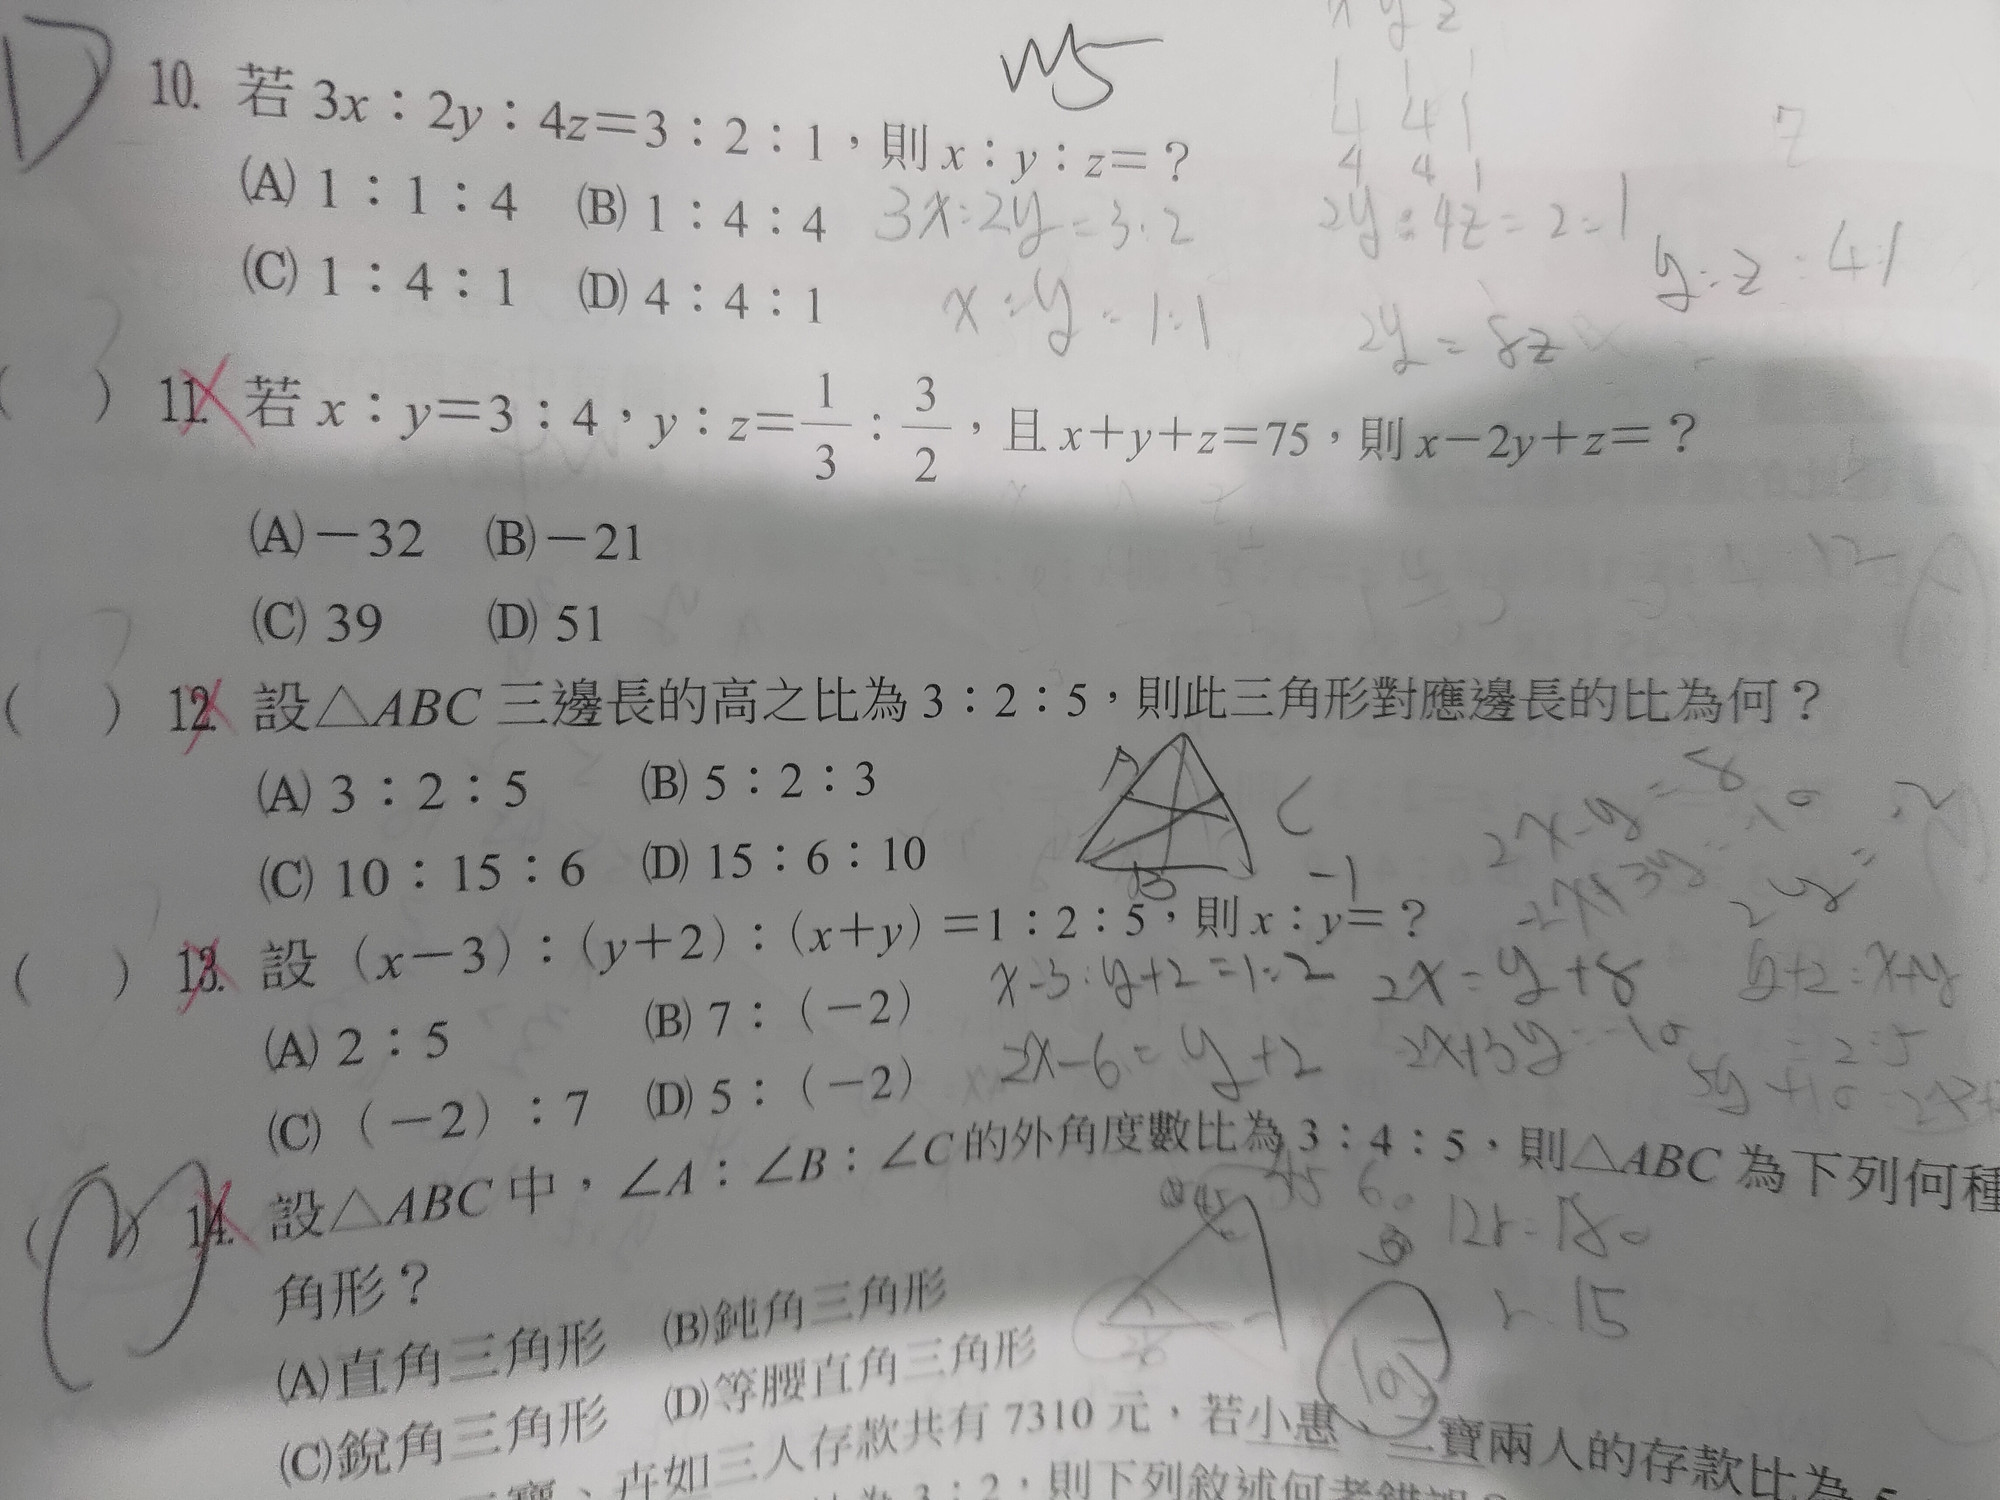 D
10. 若 3x：2y：4z＝3：2：1，則 x：y：z＝？
(A) 1：1：4 (B) 1：4：4
(C) 1：4：1 (D) 4：4：1
x y z
1 1 1
4 4 1
4 4 1
3x:2y=3:2
x:y=1:1
2y:4z=2:1
2y=8z
y:z=4:1
( ) 11. 若 x：y＝3：4，y：z＝1/3：3/2，且 x＋y＋z＝75，則 x－2y＋z＝？
(A)－32 (B)－21
(C) 39 (D) 51
( ) 12. 設△ABC 三邊長的高之比為 3：2：5，則此三角形對應邊長的比為何？
(A) 3：2：5 (B) 5：2：3
(C) 10：15：6 (D) 15：6：10
A
B
C
-1
( ) 13. 設（x－3）：（y＋2）：（x＋y）＝1：2：5，則 x：y＝？
(A) 2：5 (B) 7：（－2）
(C)（－2）：7 (D) 5：（－2）
x-3:y+2=1:2
2x-6=y+2
2x=y+8
2x-y=8
y+2:x+y
=2:5
( ) 14. 設△ABC 中，∠A：∠B：∠C 的外角度數比為 3：4：5，則△ABC 為下列何種
角形？
(A)直角三角形 (B)鈍角三角形
(C)銳角三角形 (D)等腰直角三角形
12r=180
r=15
如三人存款共有 7310 元，若小惠、二寶兩人的存款比為
3：2，則下列敘述何者錯誤？